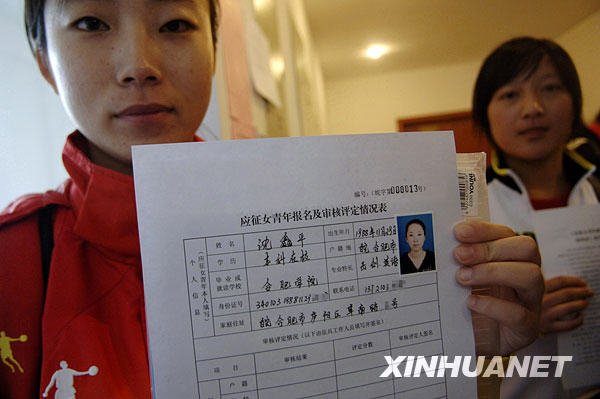 编号:(皖字第000013号)
应征女青年报名及审核评定情况表
个人信息
(应征女青年本人填写)
姓名 沈鑫平 出生年月 1988年11月29日
学历 本科在校 户籍地 皖合肥市
毕业或就读学校 合肥学院 专业特长 击剑 英语
身份证号 联系电话
家庭住址 皖合肥市庐阳区阜南路 号
审核评定情况(以下由征兵工作人员填写并签名)
项目 审核结果 评定分数 审核评定人签名
户籍
年龄
XINHUANET